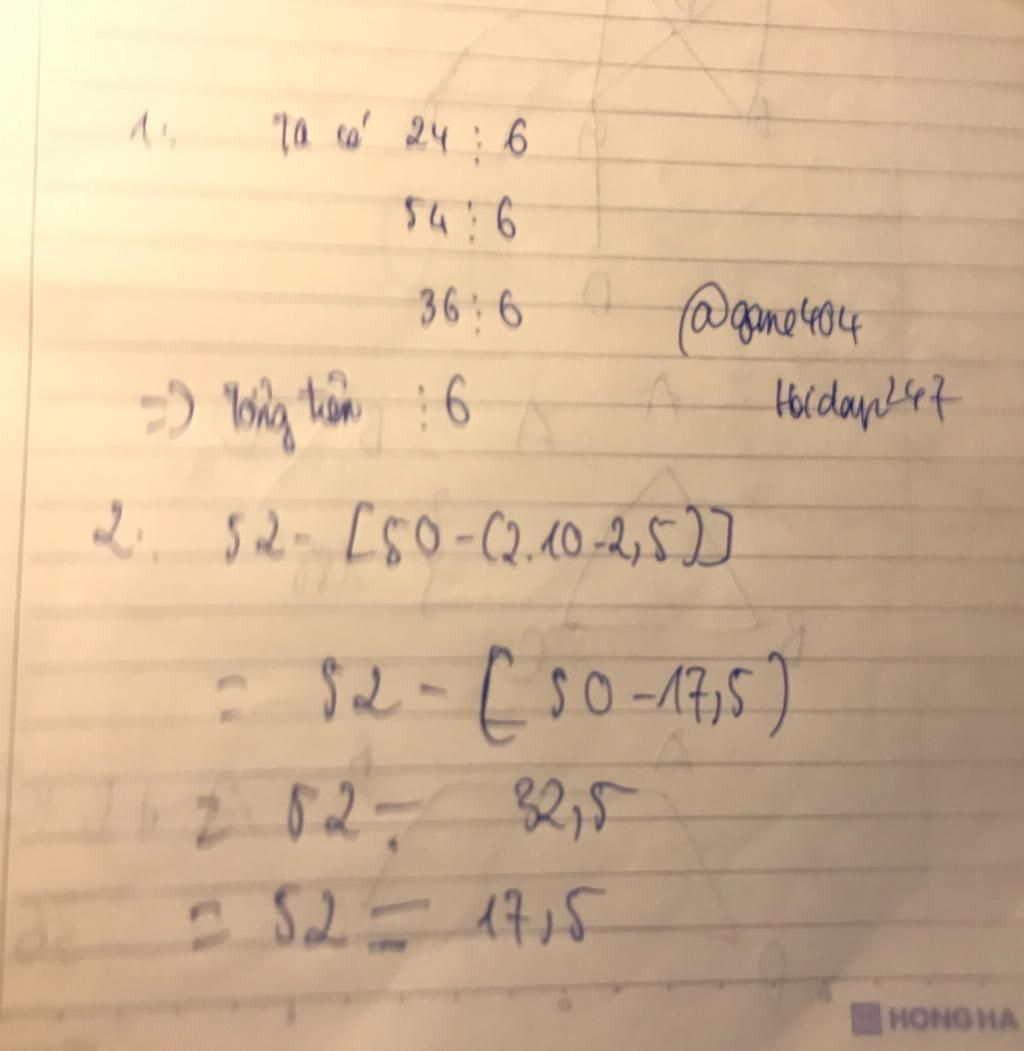 1. Ta có 24 ⋮ 6
54 ⋮ 6
36 ⋮ 6
@game404
=> Tổng trên ⋮ 6
Hoidap247
2. 52 - [50 - (2.10 - 2,5)]
= 52 - [50 - 17,5)
= 52 - 32,5
= 52 = 17,5
HONG HA